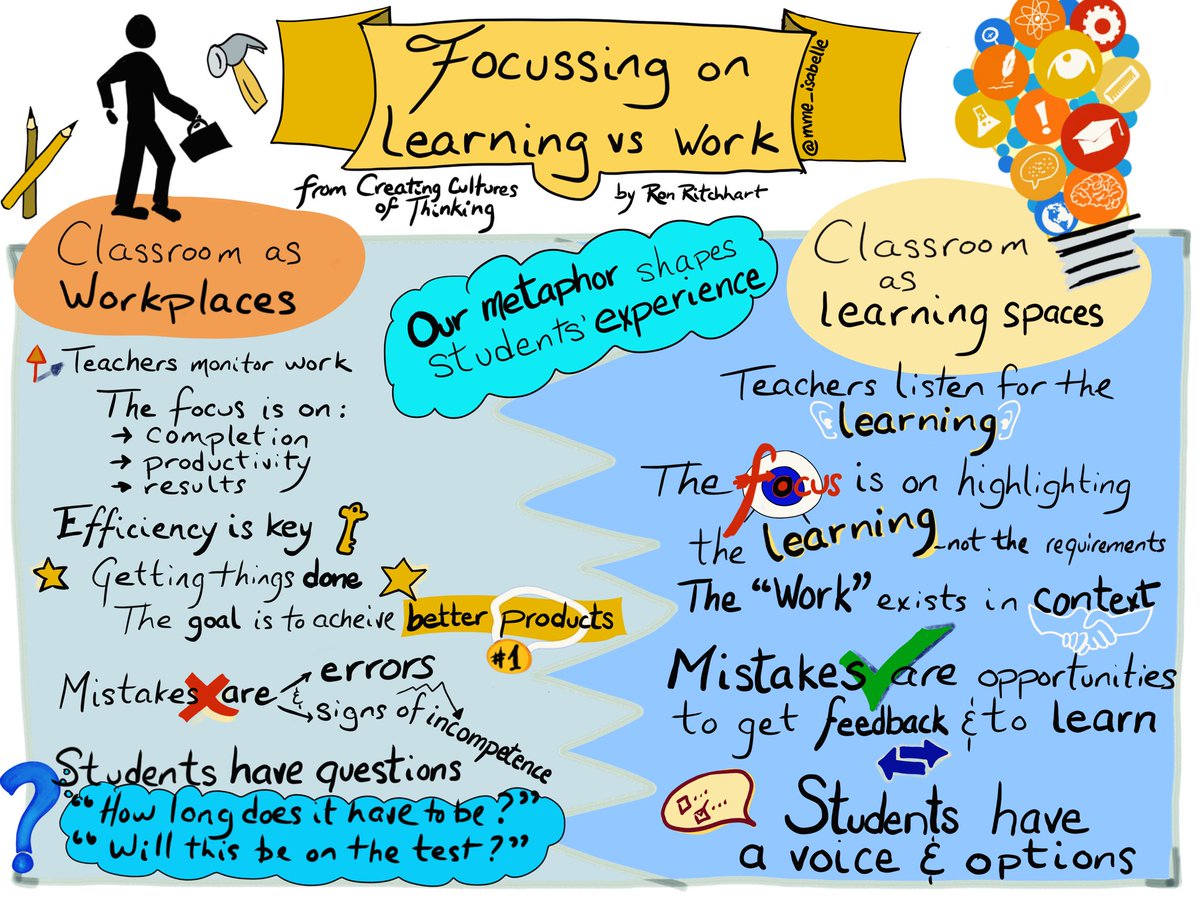 Focussing on
Learning vs Work
@mme_isabelle
from Creating Cultures
of Thinking
by Ron Ritchhart
Our metaphor shapes
students' experience
Classroom as
Workplaces
Teachers monitor work
The focus is on:
→ completion
→ productivity
→ results
Efficiency is key
Getting things done
The goal is to acheive better products
#1
Mistakes are → errors
& → signs of incompetence
Students have questions
"How long does it have to be?"
"Will this be on the test?"
Classroom
as
learning spaces
Teachers listen for the
learning
The focus is on highlighting
the learning - not the requirements
The "Work" exists in context
Mistakes are opportunities
to get feedback & to learn
Students have
a voice & options